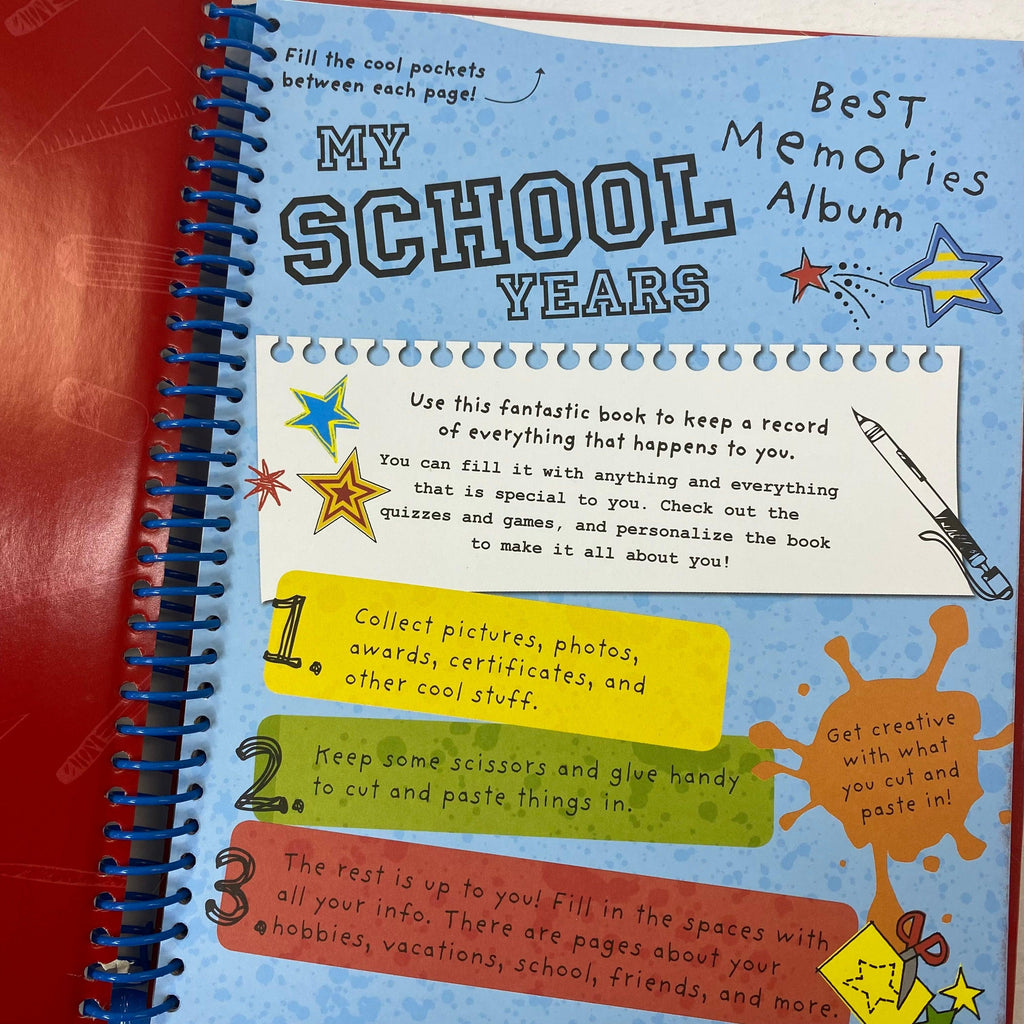 Fill the cool pockets
between each page!
BeST
Memories
Album
MY
SCHOOL
YEARS
Use this fantastic book to keep a record
of everything that happens to you.
You can fill it with anything and everything
that is special to you. Check out the
quizzes and games, and personalize the book
to make it all about you!
1.
Collect pictures, photos,
awards, certificates, and
other cool stuff.
2.
Keep some scissors and glue handy
to cut and paste things in.
Get creative
with what
you cut and
paste in!
3.
The rest is up to you! Fill in the spaces with
all your info. There are pages about your
hobbies, vacations, school, friends, and more.